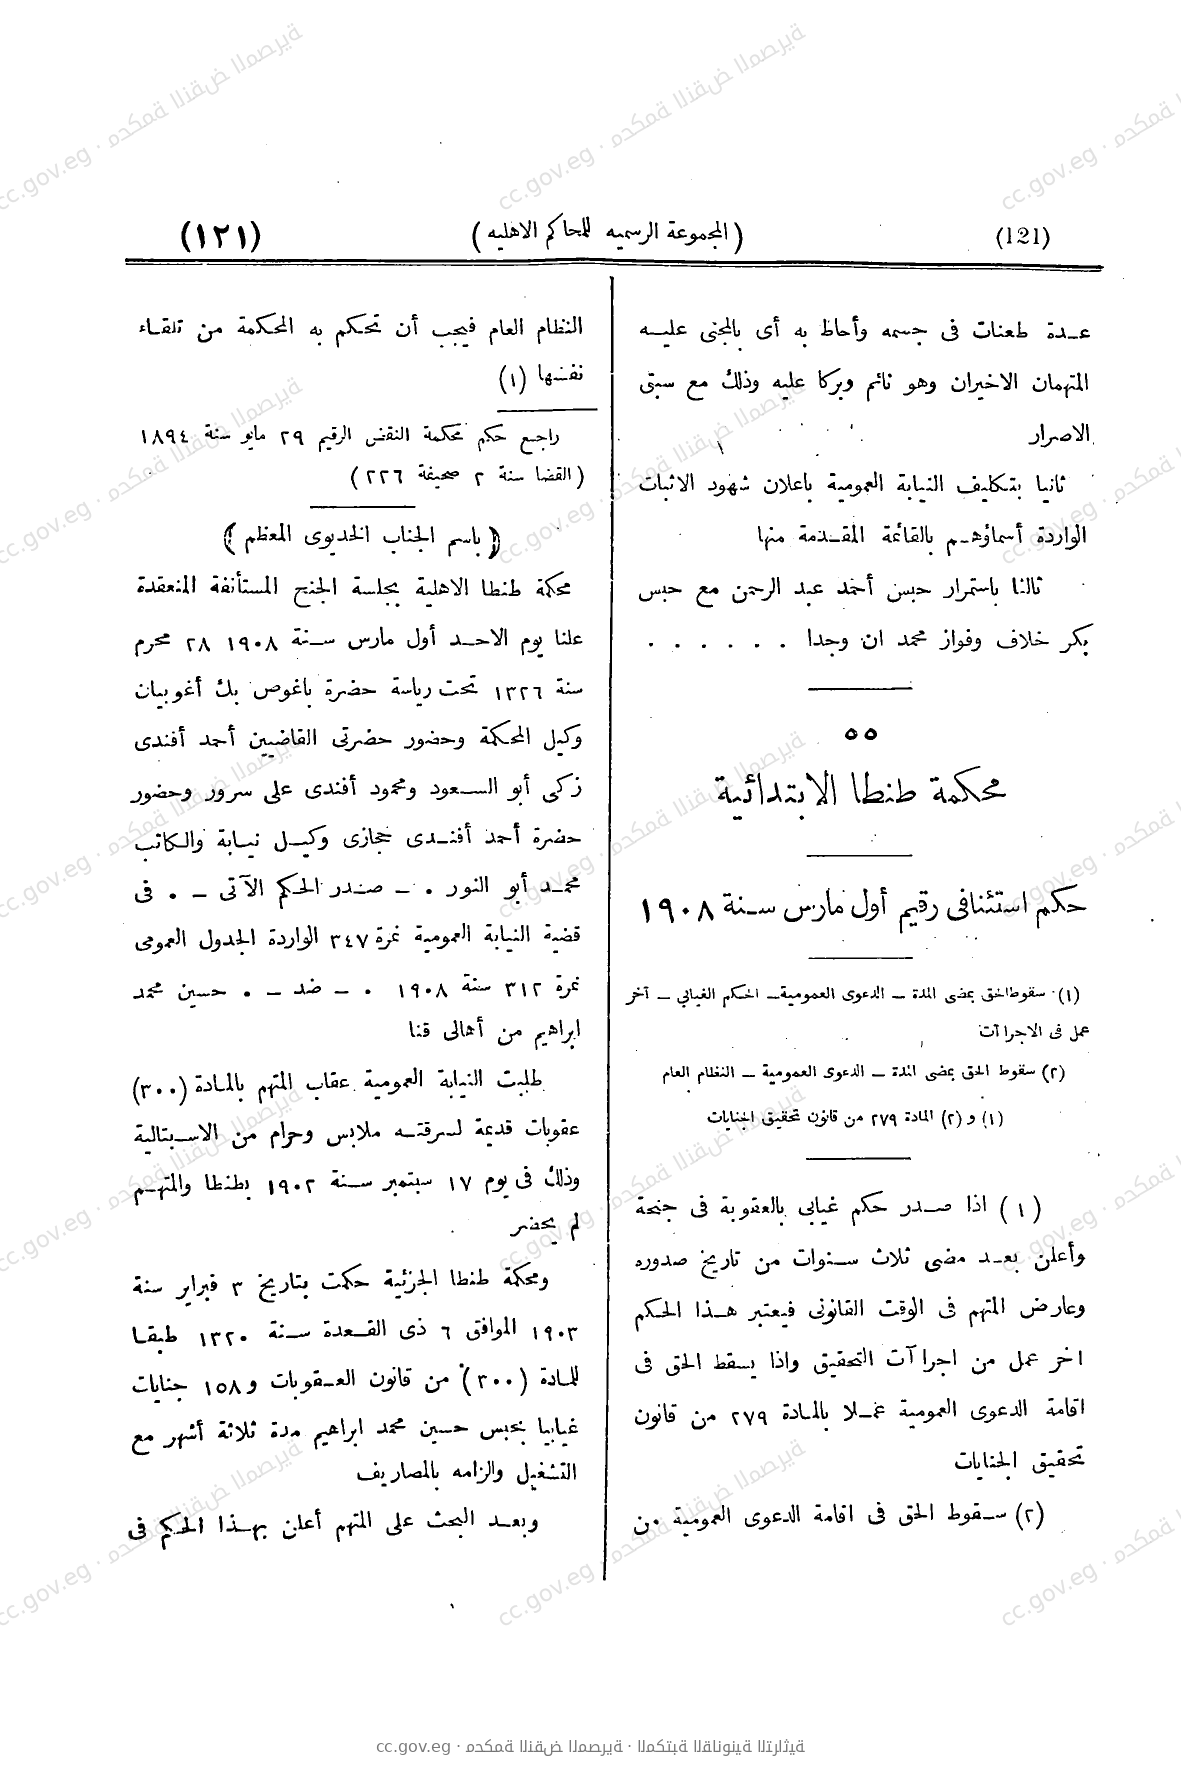 (121)
(المجموعة الرسميه للمحاكم الاهليه)
(١٢١)
عـدة طعنات فى جسمه وأحاط به أى بالمجنى عليـه
المتهمان الاخيران وهو نائم وبركا عليه وذلك مع سبق
الاصرار
ثانيا بتكليف النيابة العمومية باعلان شهود الاثبات
الواردة أسماؤهـم بالقائمة المقـدمة منها
ثالثا باستمرار حبس أحمد عبد الرحمن مع حبس
بكر خلاف وفواز محمد ان وجدا . . . . . .
٥٥
محكمة طنطا الابتدائية
حكم استئنافى رقيم أول مارس سـنة ١٩٠٨
(١) سقوط الحق بمضى المدة – الدعوى العمومية – الحكم الغيابي – آخر
عمل فى الاجراآت
(٢) سقوط الحق بمضى المدة – الدعوى العمومية – النظام العام
(١) و (٢) المادة ٢٧٩ من قانون تحقيق الجنايات
(١) اذا صـدر حكم غيابي بالعقوبة فى جنحة
وأعلن بعـد مضى ثلاث سـنوات من تاريخ صدوره
وعارض المتهم فى الوقت القانونى فيعتبر هـذا الحكم
اخر عمل من اجراآت التحقيق واذا يسقط الحق فى
اقامة الدعوى العمومية عمـلا بالمـادة ٢٧٩ من قانون
تحقيق الجنايات
(٢) سـقوط الحق فى اقامة الدعوى العمومية من
النظام العام فيجب أن تحكم به المحكمة من تلقـاء
نفسها (١)
راجع حكم محكمة النقض الرقيم ٢٩ مايو سنة ١٨٩٤
(القضا سنة ٢ صحيفة ٢٢٦)
(باسم الجناب الخديوى المعظم)
محكمة طنطا الاهلية بجلسة الجنح المستأنفة المنعقدة
علنا يوم الاحـد أول مارس سـنة ١٩٠٨ ٢٨ محرم
سنة ١٣٢٦ تحت رياسة حضرة باغوص بك أغوبيان
وكيل المحكمة وحضور حضرتى القاضيين أحمد أفندى
زكى أبو السـعود ومحمود أفندى على سرور وحضور
حضرة أحمد أفنـدى حجازى وكيـل نيـابة والكاتب
محمـد أبو النور . – صـدر الحكم الآتى – . فى
قضية النيابة العمومية نمرة ٣٤٧ الواردة الجدول العمومى
نمرة ٣١٢ سنة ١٩٠٨ . – ضد – . حسين محمد
ابراهيم من أهالى قنا
طلبت النيابة العمومية عقاب المتهم بالمـادة (٣٠٠)
عقوبات قديمة لسرقتـه ملابس وحرام من الاسـبتالية
وذلك فى يوم ١٧ سبتمبر سـنة ١٩٠٢ بطنطا والمتهـم
لم يحضر
ومحكمة طنطا الجزئية حكمت بتاريخ ٣ فبراير سنة
١٩٠٣ الموافق ٦ ذى القـعدة سـنة ١٣٢٠ طبقـا
للمـادة (٣٠٠) من قانون العـقوبات و١٥٨ جنايات
غيابيا بحبس حسين محمد ابراهيم مدة ثلاثة أشهر مع
التشغيل والزامه بالمصاريف
وبعـد البحث على المتهم أعلن بهـذا الحكم فى
cc.gov.eg · محكمة النقض المصرية · المكتبة القانونية التراثية